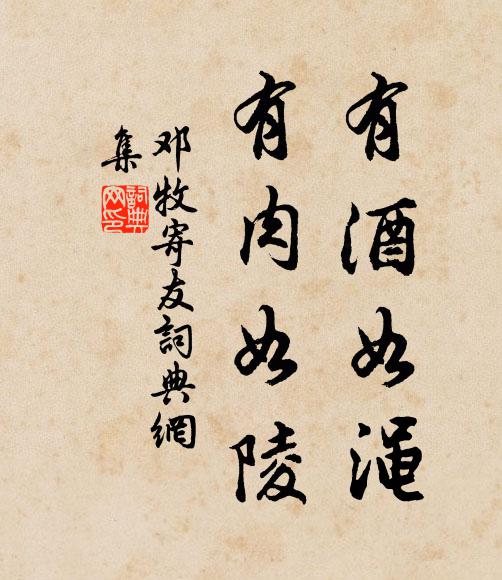 有酒如渑
有肉如陵
邓牧寄友詞典網
集
詞典网印